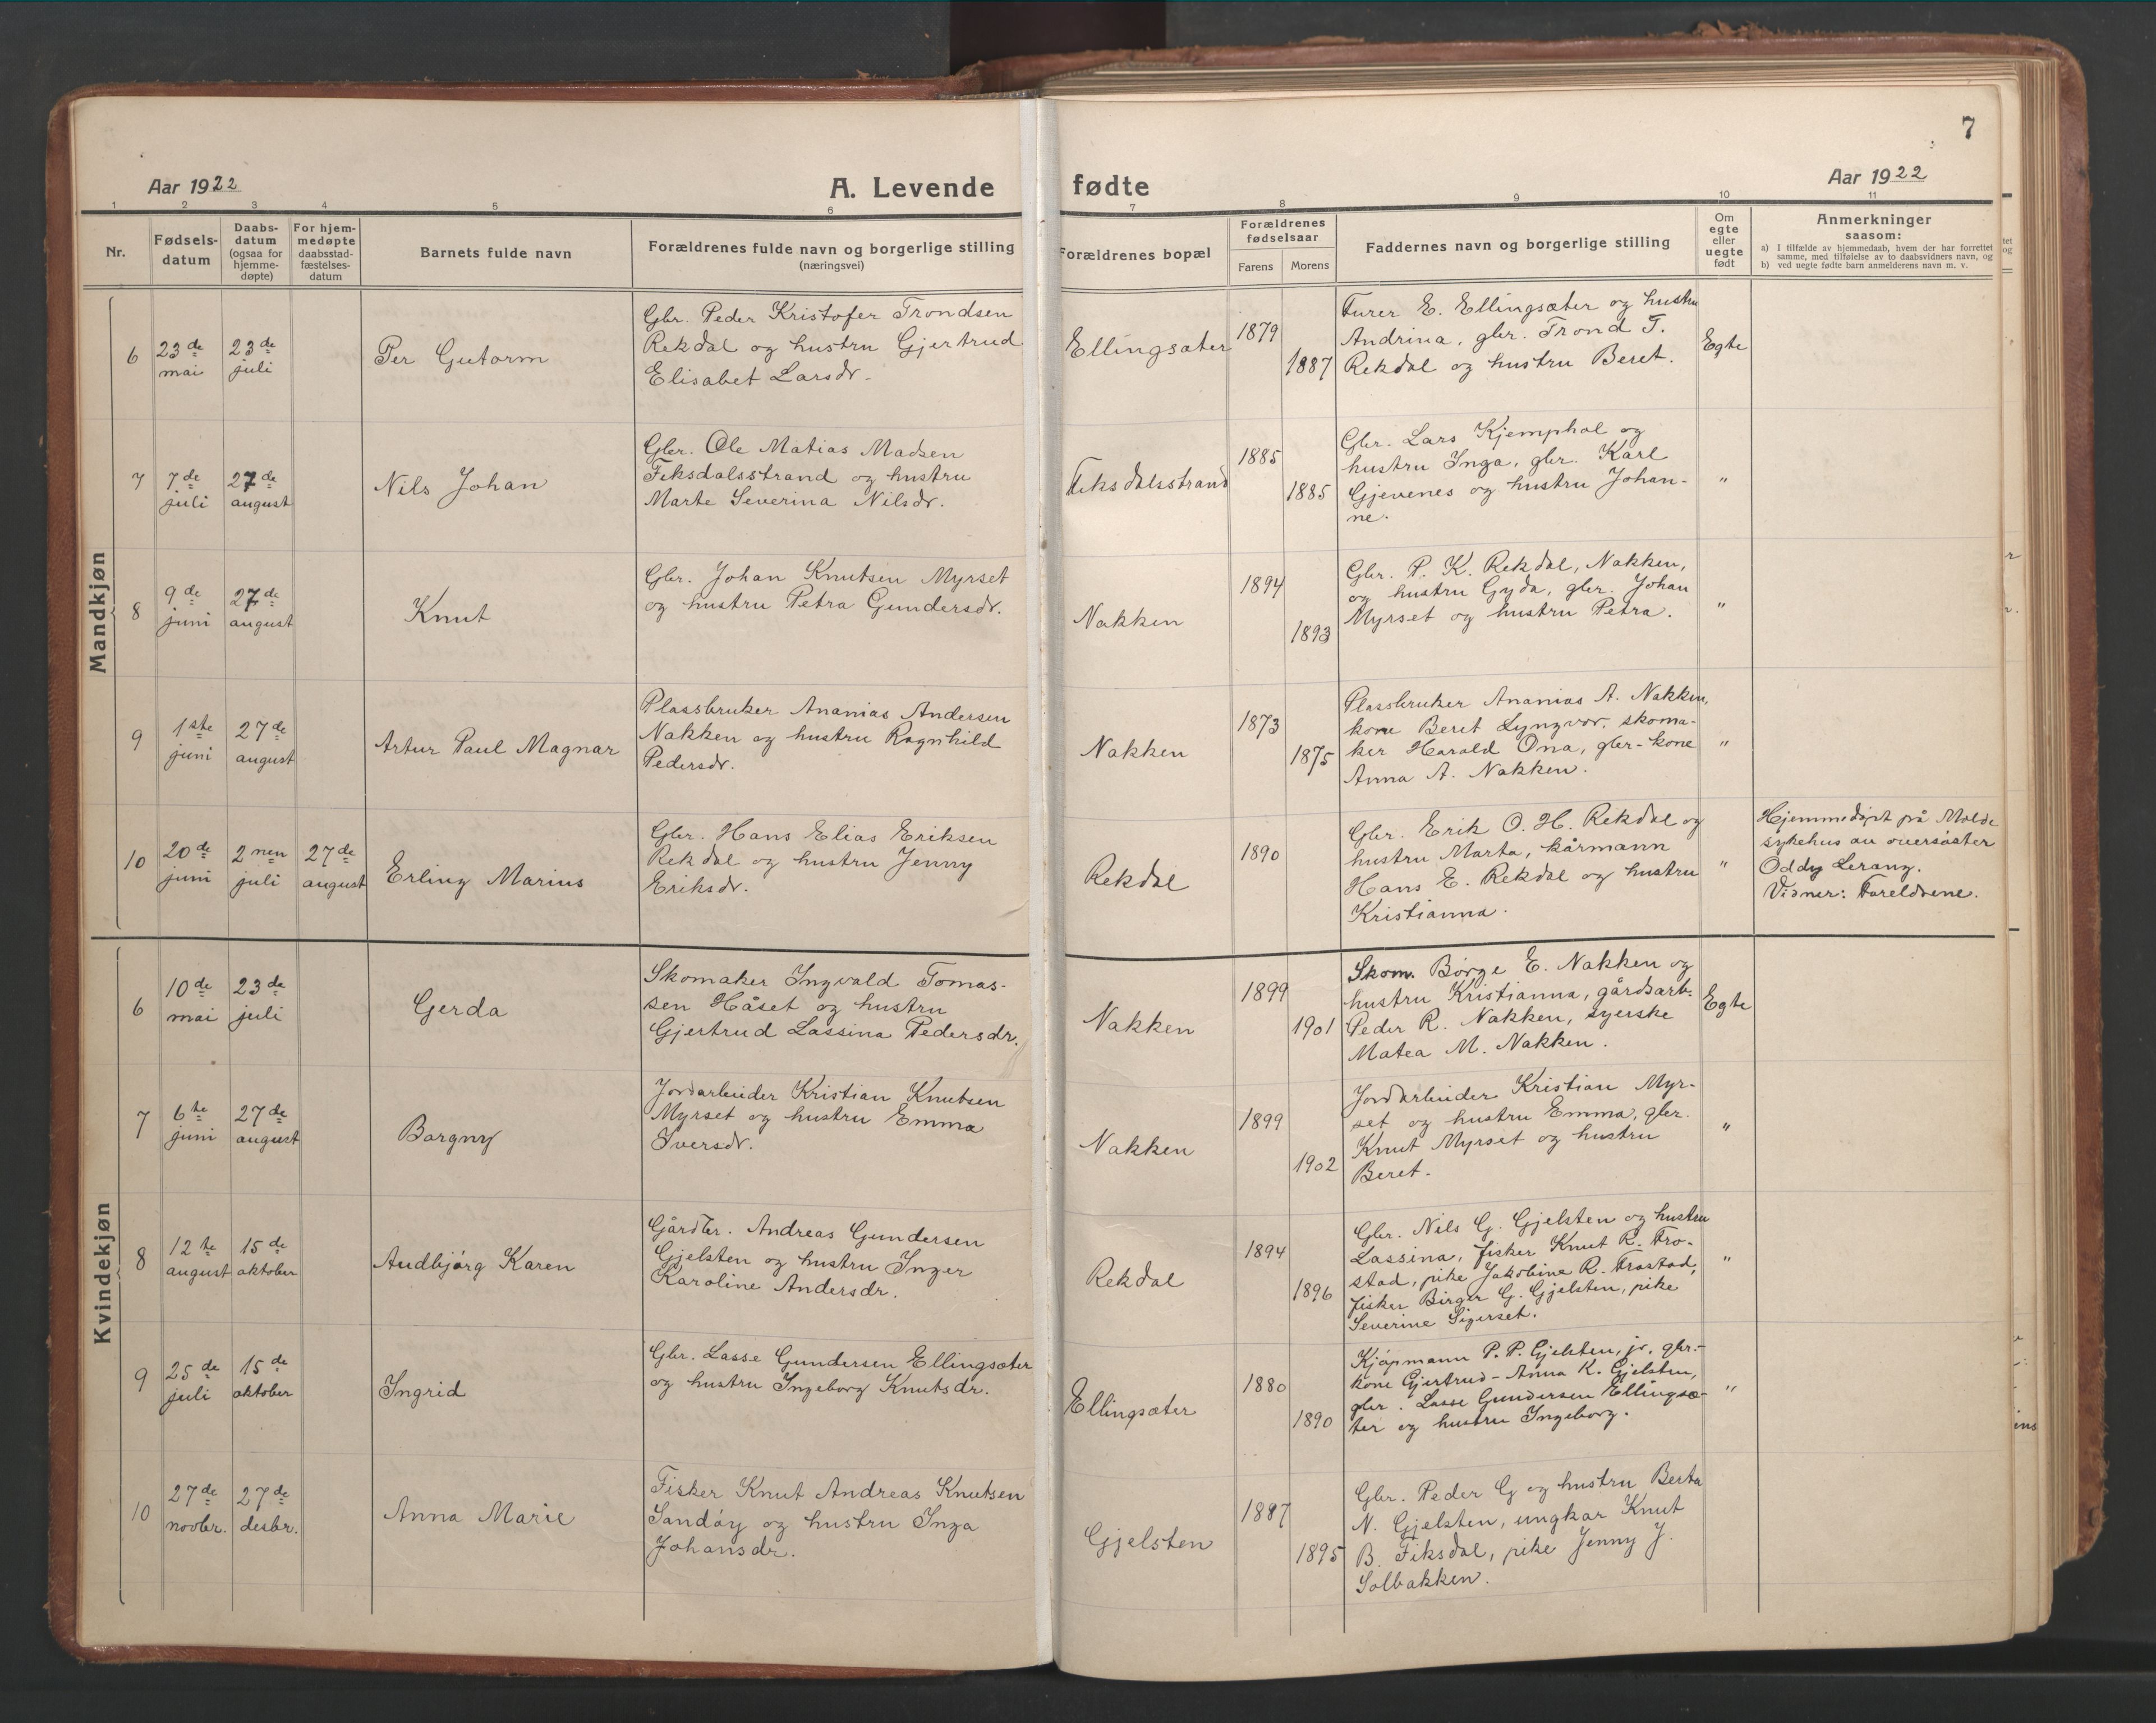 7
Aar 1922
A. Levende fødte
Aar 1922
1 2 3 4 5 6 7 8 9 10 11
Nr.
Fødsels-
datum
Daabs-
datum
(ogsaa for
hjemme-
døpte)
For hjem-
medøpte
daabsstad-
fæstelses-
datum
Barnets fulde navn
Forældrenes fulde navn og borgerlige stilling
(næringsvei)
Forældrenes bopæl
Forældrenes
fødselsaar
Farens Morens
Faddernes navn og borgerlige stilling
Om
egte
eller
uegte
født
Anmerkninger
saasom:
a) I tilfælde av hjemmedaab, hvem der har forrettet
samme, med tilføielse av to daabsvidners navn, og
b) ved uegte fødte barn anmelderens navn m. v.
Mandkjøn
6
23de
mai
23de
juli
Per Gutorm
Gbr. Peder Kristofer Trondsen
Rekdal og hustru Gjertrud
Elisabet Larsdr.
Ellingsæter
1879
1887
Furer E. Ellingsæter og hustru
Andrina, gbr. Trond T.
Rekdal og hustru Beret.
Egte
7
7de
juli
27de
august
Nils Johan
Gbr. Ole Matias Madsen
Fiksdalsstrand og hustru
Marte Severina Nilsdr.
Fiksdalsstrand
1885
1885
Gbr. Lars Kjemphol og
hustru Inga, gbr. Karl
Gjevenes og hustru Johan-
ne.
"
8
9de
juni
27de
august
Knut
Gbr. Johan Knutsen Myrset
og hustru Petra Gundersdr.
Nakken
1894
1893
Gbr. P. K. Rekdal, Nakken,
og hustru Gyda, gbr. Johan
Myrset og hustru Petra.
"
9
1ste
juni
27de
august
Artur Paul Magnar
Plassbruker Ananias Andersen
Nakken og hustru Ragnhild
Pedersdr.
Nakken
1873
1875
Plassbruker Ananias A. Nakken,
kone Beret Lyngvær, skoma-
ker Harald Ona, gbr-kone
Anna A. Nakken.
"
10
20de
juni
2nen
juli
27de
august
Erling Marius
Gbr. Hans Elias Eriksen
Rekdal og hustru Jenny
Eriksdr.
Rekdal
1890
Gbr. Erik O. H. Rekdal og
hustru Marta, kårmann
Hans E. Rekdal og hustru
Kristianna.
"
Hjemmedøpt på Molde
sykehus au oversøster
Oddy Lerang.
Vidner: Foreldrene.
Kvindekjøn
6
10de
mai
23de
juli
Gerda
Skomaker Ingvald Tomas-
sen Håset og hustru
Gjertrud Lassina Pedersdr.
Nakken
1899
1901
Skom. Børge E. Nakken og
hustru Kristianna, gårdsarb.
Peder R. Nakken, syerske
Matea M. Nakken.
Egte
7
6te
juni
27de
august
Borgny
Jordarbeider Kristian Knutsen
Myrset og hustru Emma
Iversdr.
Nakken
1899
1902
Jordarbeider Kristian Myr-
set og hustru Emma, gbr.
Knut Myrset og hustru
Beret.
"
8
12te
august
15de
oktober
Audbjørg Karen
Gårdbr. Andreas Gundersen
Gjelsten og hustru Inger
Karoline Andersdr.
Rekdal
1894
1896
Gbr. Nils G. Gjelsten og hustru
Lassina, fisker Knut R. Fro-
stad, pike Jakobine R. Frostad,
fisker Birger G. Gjelsten, pike
Severine Sigerset.
"
9
25de
juli
15de
oktober
Ingrid
Gbr. Lasse Gundersen Ellingsæter
og hustru Ingeborg Knutsdr.
Ellingsæter
1880
1890
Kjøpmann P. P. Gjelsten, jr, gbr.-
kone Gjertrud-Anna K. Gjelsten,
gbr. Lasse Gundersen Ellingsæ-
ter og hustru Ingeborg.
"
10
27de
novbr.
27de
desbr.
Anna Marie
Fisker Knut Andreas Knutsen
Sandøy og hustru Inga
Johansdr.
Gjelsten
1897
1895
Gbr. Peder G og hustru Berta
N. Gjelsten, ungkar Knut
B. Fiksdal, pike Jenny J.
Solbakken.